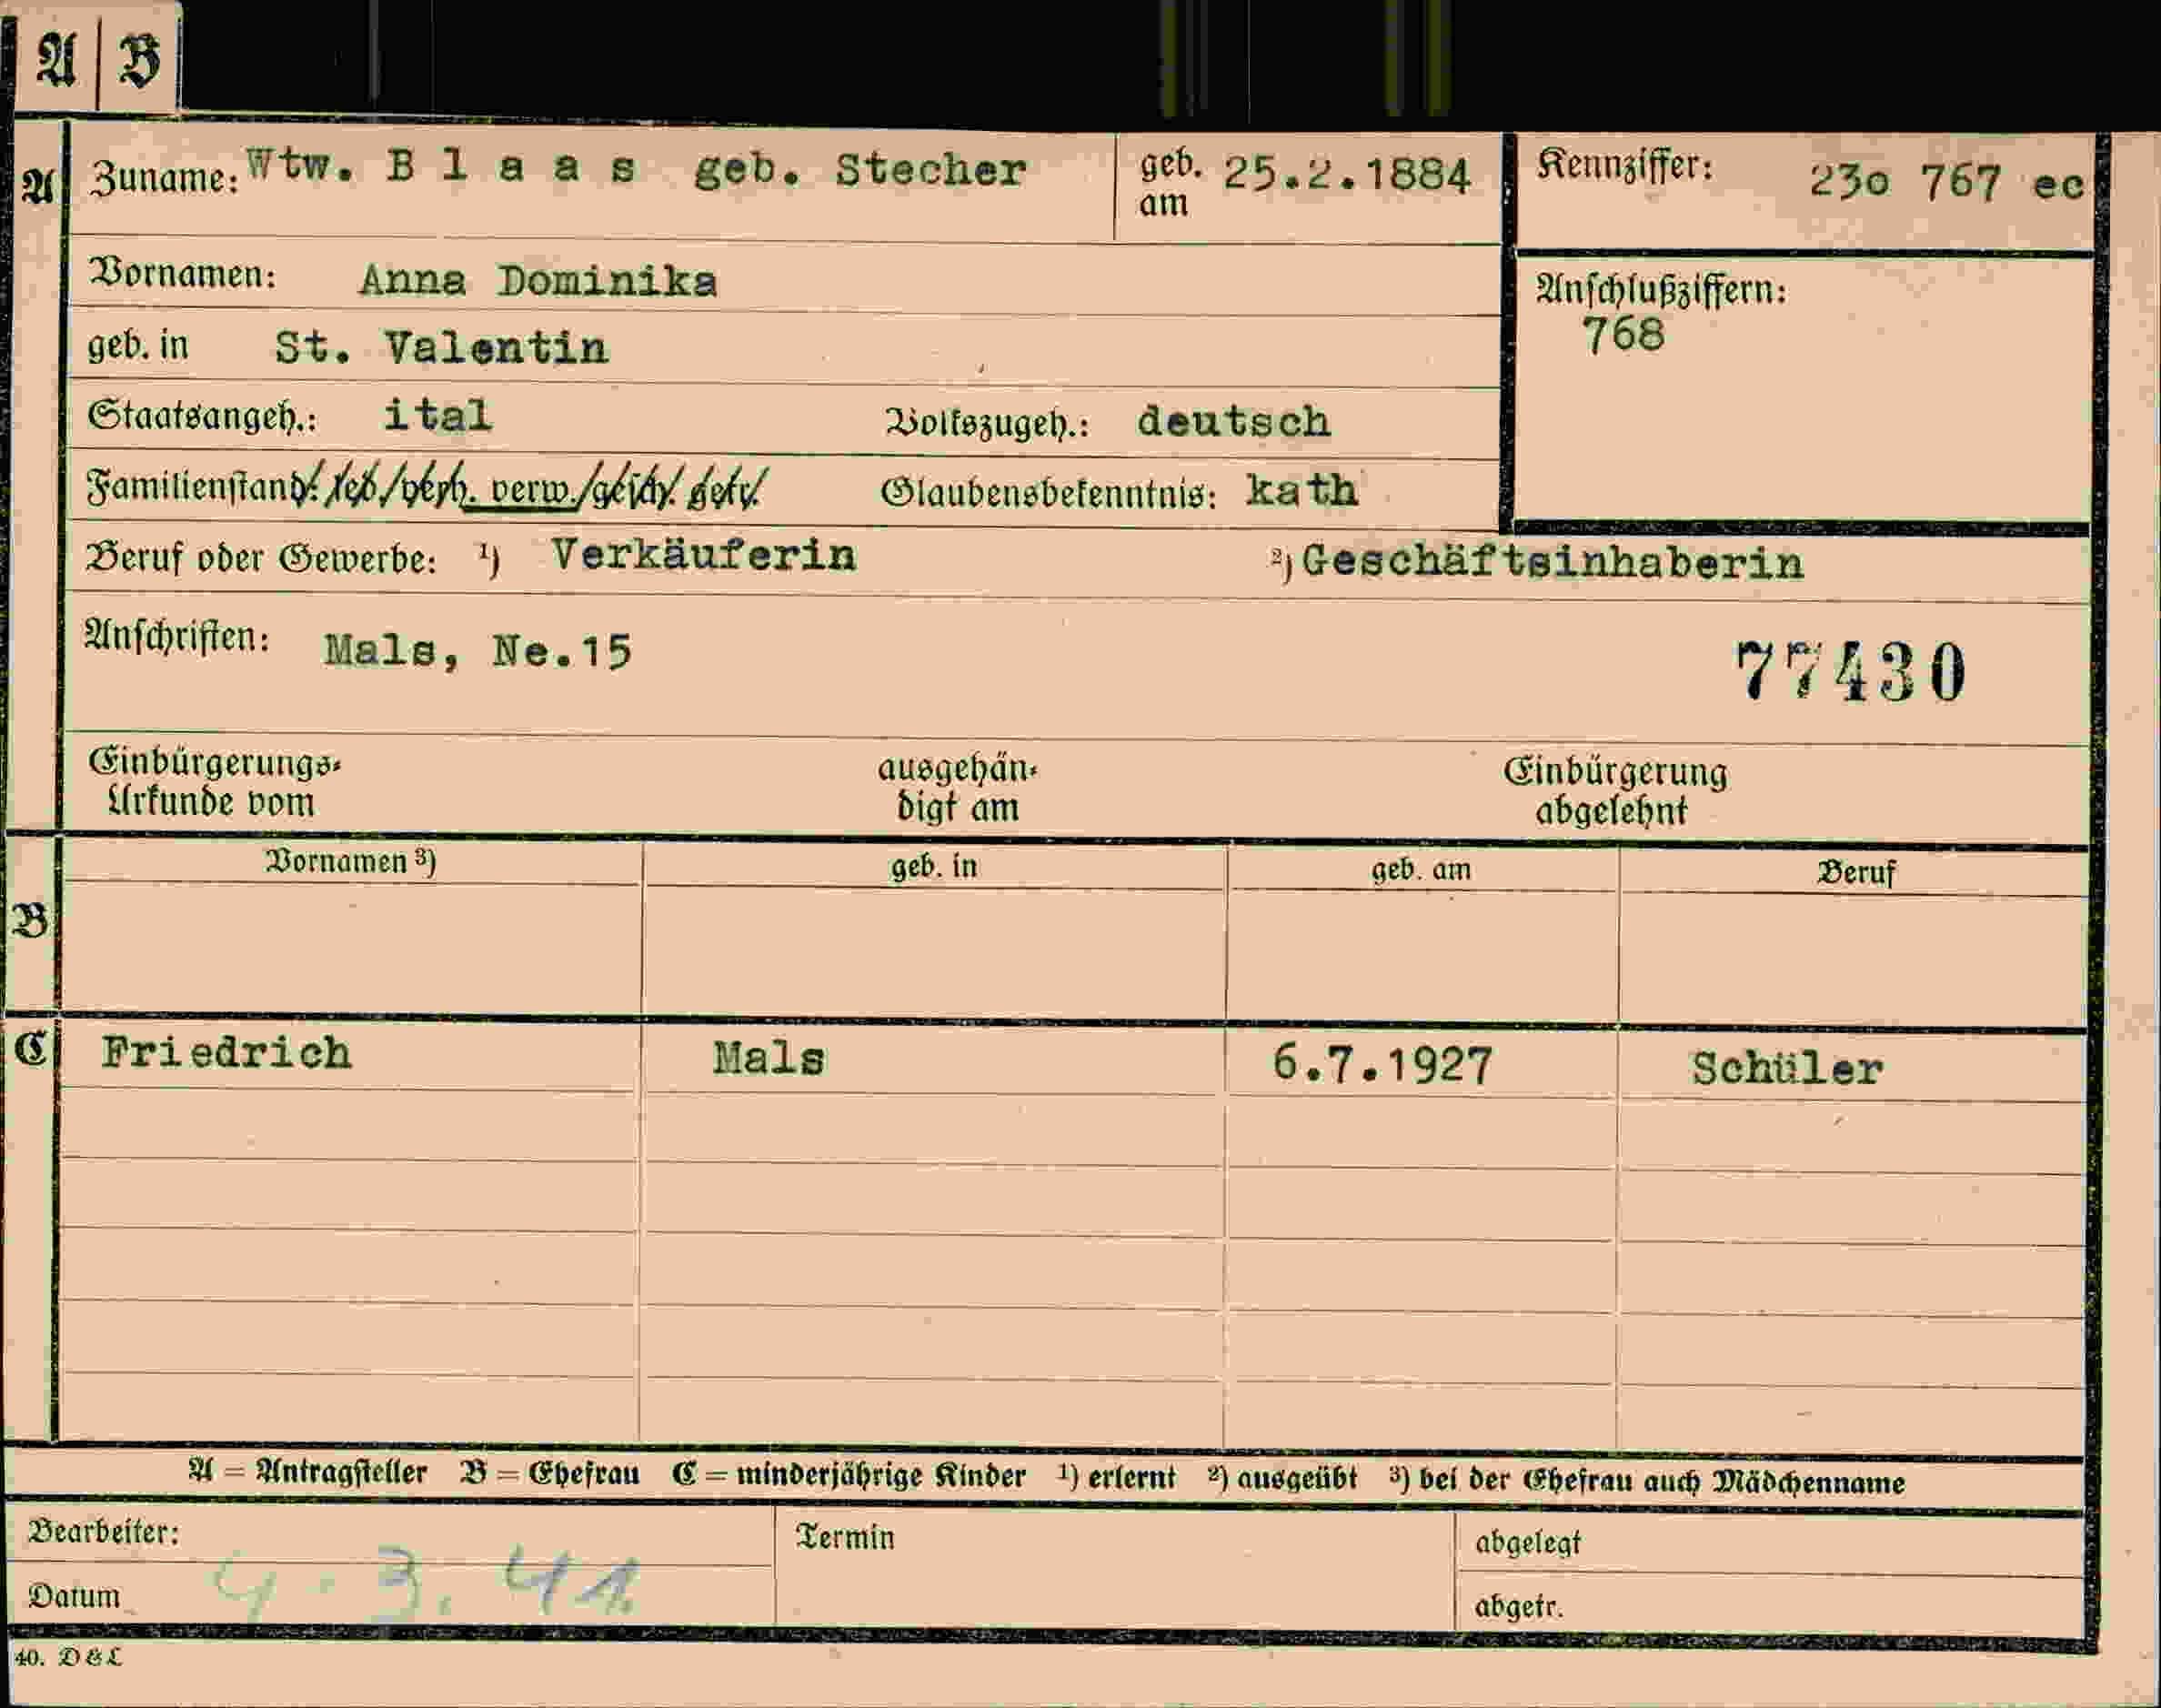 A B
A Zuname: Wtw. B l a a s geb. Stecher geb. am 25.2.1884 Kennziffer: 23o 767 ec
Vornamen: Anna Dominika Anschlußziffern:
768
geb. in St. Valentin
Staatsangeh.: ital Volkszugeh.: deutsch
Familienstand: led./verh. verw./gesch. getr. Glaubensbekenntnis: kath
Beruf oder Gewerbe: ¹) Verkäuferin ²) Geschäftsinhaberin
Anschriften: Mals, Ne.15
77430
Einbürgerungs- ausgehän- Einbürgerung
Urkunde vom digt am abgelehnt
Vornamen ³) geb. in geb. am Beruf
B
C Friedrich Mals 6.7.1927 Schüler
A = Antragsteller B = Ehefrau C = minderjährige Kinder ¹) erlernt ²) ausgeübt ³) bei der Ehefrau auch Mädchenname
Bearbeiter: Termin abgelegt
Datum 4.3.41. abgetr.
40. D & L